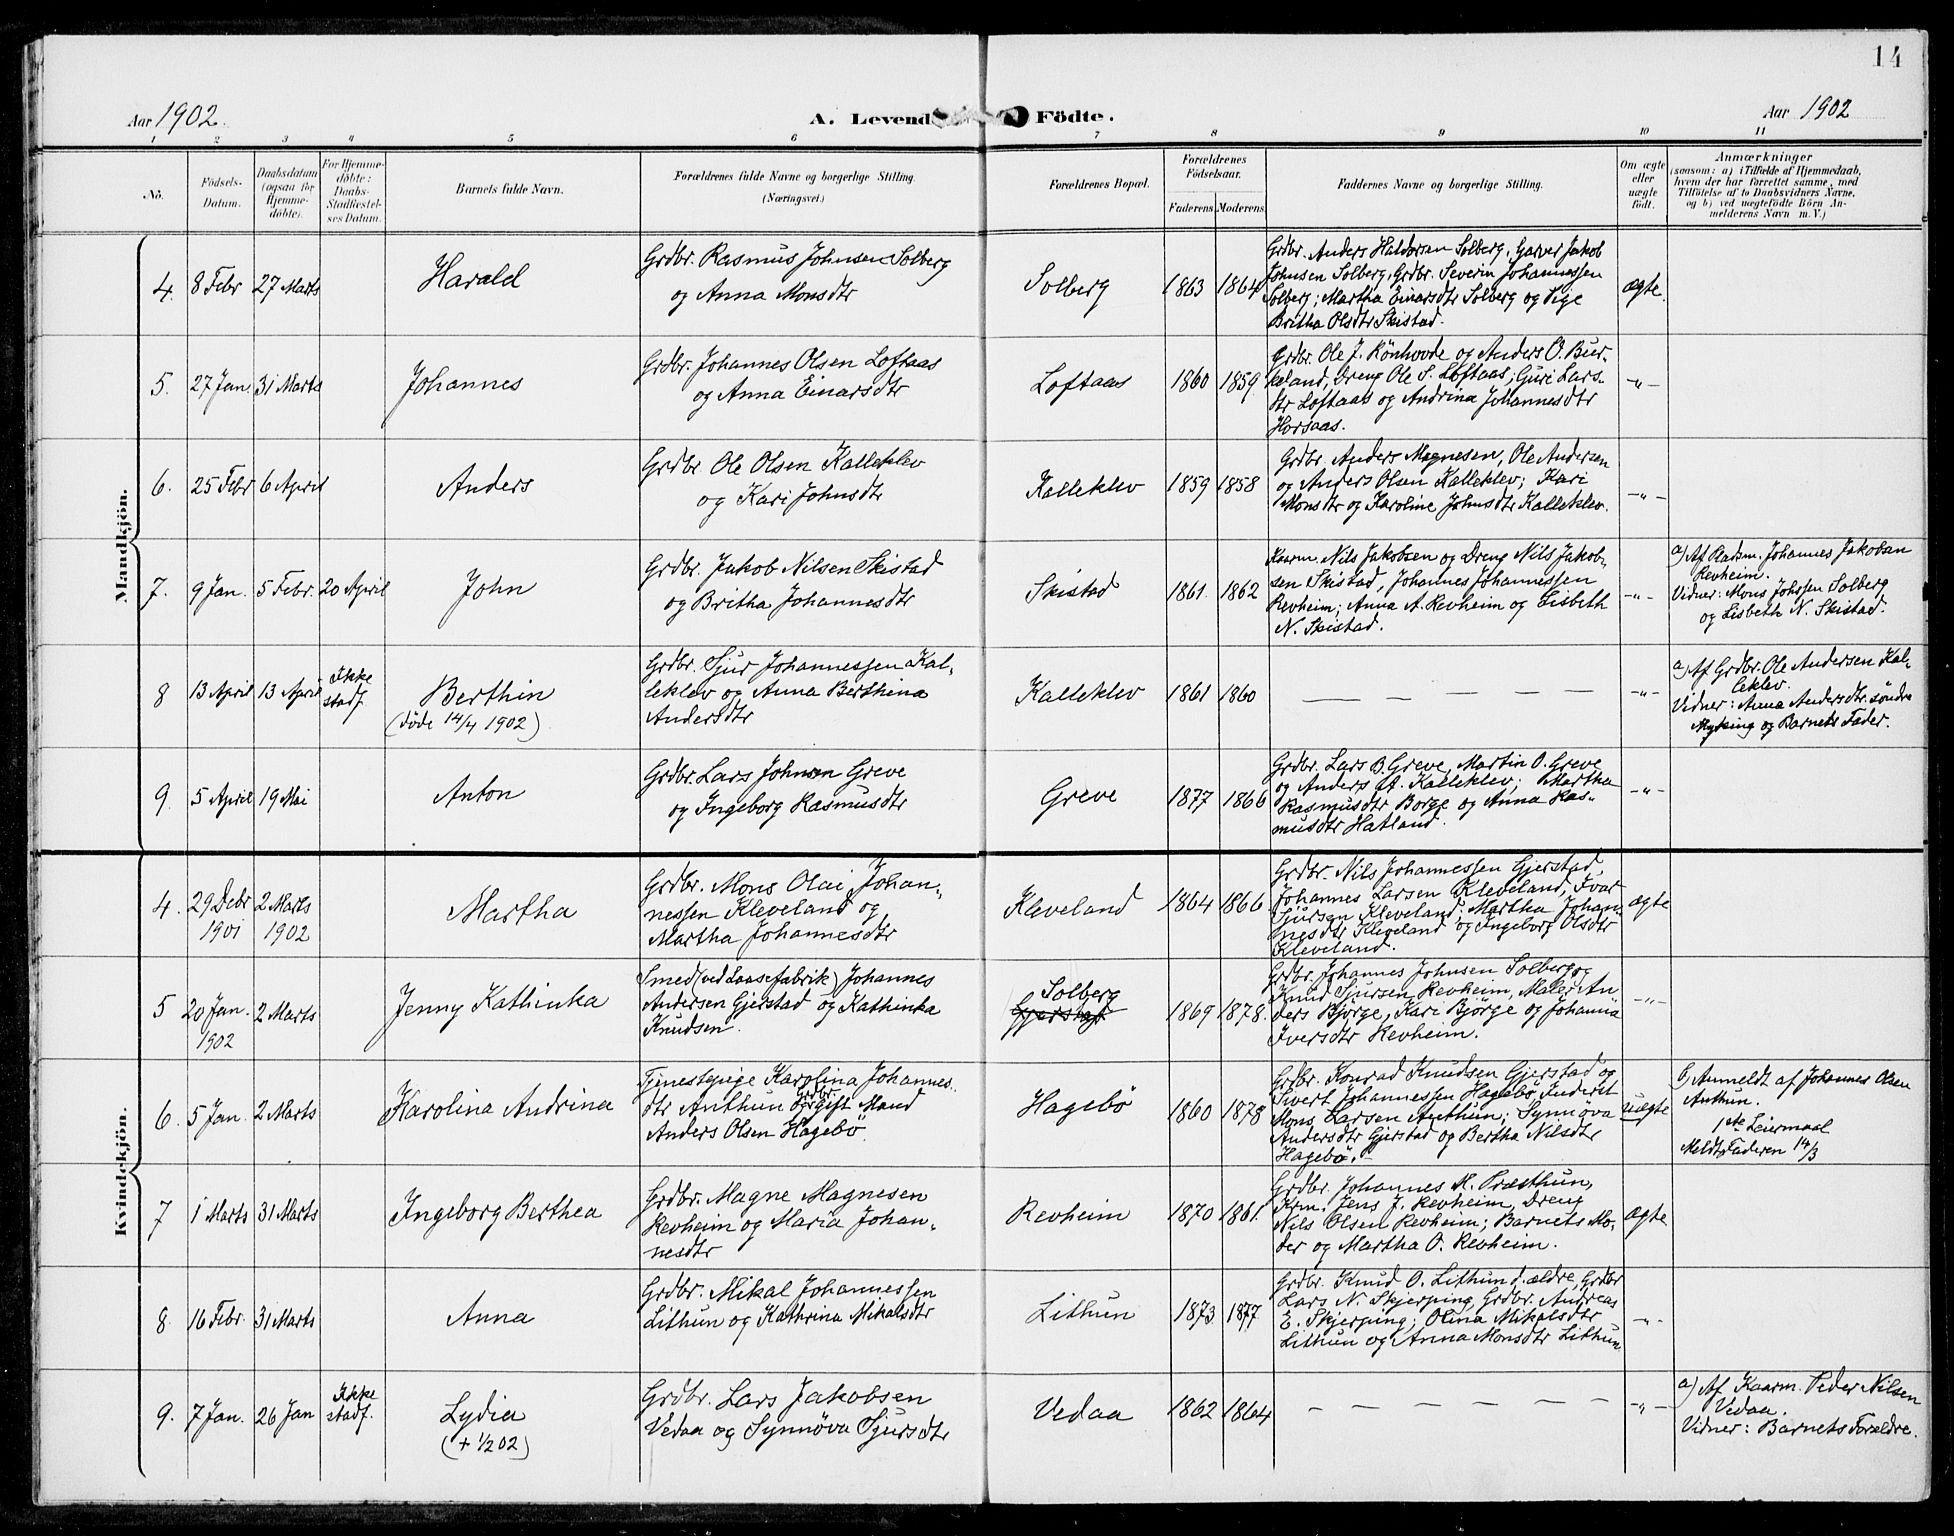 14
Aar 1902.
A. Levend Födte.
Aar 1902
1 2 3 4 5 6 7 8 9 10 11
No.
Födsels-
Datum.
Daabsdatum
(ogsaa for
Hjemme-
döbte).
For Hjemme-
döbte:
Daabs-
Stadfæstel-
ses Datum.
Barnets fulde Navn.
Forældrenes fulde Navne og borgerlige Stilling.
(Næringsvei.)
Forældrenes Bopæl.
Forældrenes
Födselsaar.
Faderens Moderens
Faddernes Navne og borgerlige Stilling.
Om ægte
eller
uægte
födt.
Anmærkninger
(saasom: a) i Tilfælde af Hjemmedaab,
hvem der har forrettet samme, med
Tilföielse af to Daabsvidners Navne,
og b) ved uægtefödte Börn An-
melderens Navn m. V.)
Mandkjön.
4. 8 Febr 27 Marts
Harald
Grdbr. Rasmus Johnsen Solberg
og Anna Monsdtr
Solberg
1863 1864
Grdbr. Anders Haldorsen Solberg, Garver Jakob
Johnsen Solberg, Grdbr. Severin Johannessen
Solberg; Martha Einarsdtr Solberg og Pige
Britha Olsdtr Skistad.
ægte
5. 27 Jan. 31 Marts
Johannes
Grdbr. Johannes Olsen Loftaas
og Anna Einarsdtr
Loftaas
1860 1859
Grdbr. Ole J. Rönhovde og Anders O. Bur-
keland, Dreng Ole S. Loftaas; Guri Lars-
dtr Loftaas og Andrina Johannesdtr
Horsaas.
-"-
6. 25 Febr 6 April
Anders
Grdbr. Ole Olsen Kalleklev
og Kari Johnsdtr
Kalleklev
1859 1858
Grdbr. Anders Magnesen, Ole Andersen
og Anders Olsen Kalleklev; Kari
Monsdtr og Karoline Johnsdtr Kalleklev.
-"-
7. 9 Jan. 5 Febr. 20 April
John
Grdbr. Jakob Nilsen Skistad
og Britha Johannesdtr
Skistad
1861. 1862
Kaarm. Nils Jakobsen og Dreng Nils Jakob-
sen Skistad, Johannes Johannessen
Revheim; Anna A. Revheim og Lisbeth
N. Skistad.
-"-
a) Af Kadsm. Johannes Jakobsen
Revheim.
Vidner: Mons Johssen Solberg
og Lisbeth N. Skistad.
8 13 April 13 April
Ikke
stadf.
Berthin
(döde 14/4 1902)
Grdbr. Sjur Johannessen Kal-
leklev og Anna Berthina
Andersdtr
Kalleklev
1861 1860
— — — — — —
-"-
a) Af Grdbr. Ole Andersen Kal-
leklev.
Vidner: Anna Andersdtr. söndre
Myking og Barnets Fader.
9. 5 April 19 Mai
Anton
Grdbr. Lars Johnsen Greve
og Ingeborg Rasmusdtr
Greve
1877 1866
Grdbr. Lars B. Greve, Martin O. Greve
og Anders A. Kalleklev; Martha
Rasmusdtr Borge og Anna Ras-
musdtr Hatland.
-"-
Kvindekjön.
4. 29 Debr 2 Marts
1901 1902
Martha
Grdbr. Mons Olai Johan-
nessen Kleveland og
Martha Johannesdtr
Kleveland
1864 1866
Grdbr. Nils Johannessen Gjerstad,
Johannes Larsen Kleveland, Ivar
Sjursen Kleveland; Martha Johan-
nesdtr Kleveland og Ingeborg Olsdtr
Kleveland.
ægte
5 20 Jan. 2 Marts
1902
Jenny Kathinka
Smed (ved Laasefabrik) Johannes
Andersen Gjerstad og Kathinka
Knudsen.
Solberg
Gjerstad
1869 1878.
Grdbr. Johannes Johnsen Solberg og
Knud Sjursen Revheim, Maler An-
ders Bjørge, Kari Bjørge og Johanna
Iversdtr Revheim.
-"-
6. 5 Jan. 2 Marts
Karolina Andrina
Tjenestepige Karolina Johannes-
dtr Anthun Grdbr. og gift Mand
Anders Olsen Hagebö
Hagebö
1860 1878
Grdbr. Konrad Knudsen Gjerstad og
Sivert Johannessen Hagebö, Inderst
Mons Larsen Anthun; Synnöva
Andersdtr Gjerstad og Bertha Nilsdtr
Hagebö.
uægte
b) Anmeldt af Johannes Olsen
Anthun.
1ste Leiermaal
Meldt Faderen 14/3
7 1 Marts 31 Marts
Ingeborg Berthea
Grdbr. Magne Magnesen
Revheim og Maria Johan-
nesdtr
Revheim
1870 1861.
Grdbr. Johannes M. Præsthun,
Krm. Jens J. Revheim, Dreng
Nils Olsen Revheim; Barnets Mo-
der og Martha O. Revheim.
ægte
8. 16 Febr. 31 Marts
Anna
Grdbr. Mikal Johannessen
Lithun og Kathrina Mikalsdtr
Lithun
1873 1877
Grdbr. Knud O. Lithun d. ældre, Grdbr
Lars N. Skjerping, Grdbr. Andreas
E. Skjerping; Olina Mikalsdtr
Lithun og Anna Monsdtr Lithun
-"-
9. 7 Jan. 26 Jan
Ikke
stadf.
Lydia
(+ 1/2 02)
Grdbr. Lars Jakobsen
Vedaa og Synnöva Sjursdtr
Vedaa
1862 1864
— — — — — — —
-"-
a) Af Kaarm. Peder Nilsen
Vedaa.
Vidner: Barnets Forældre.